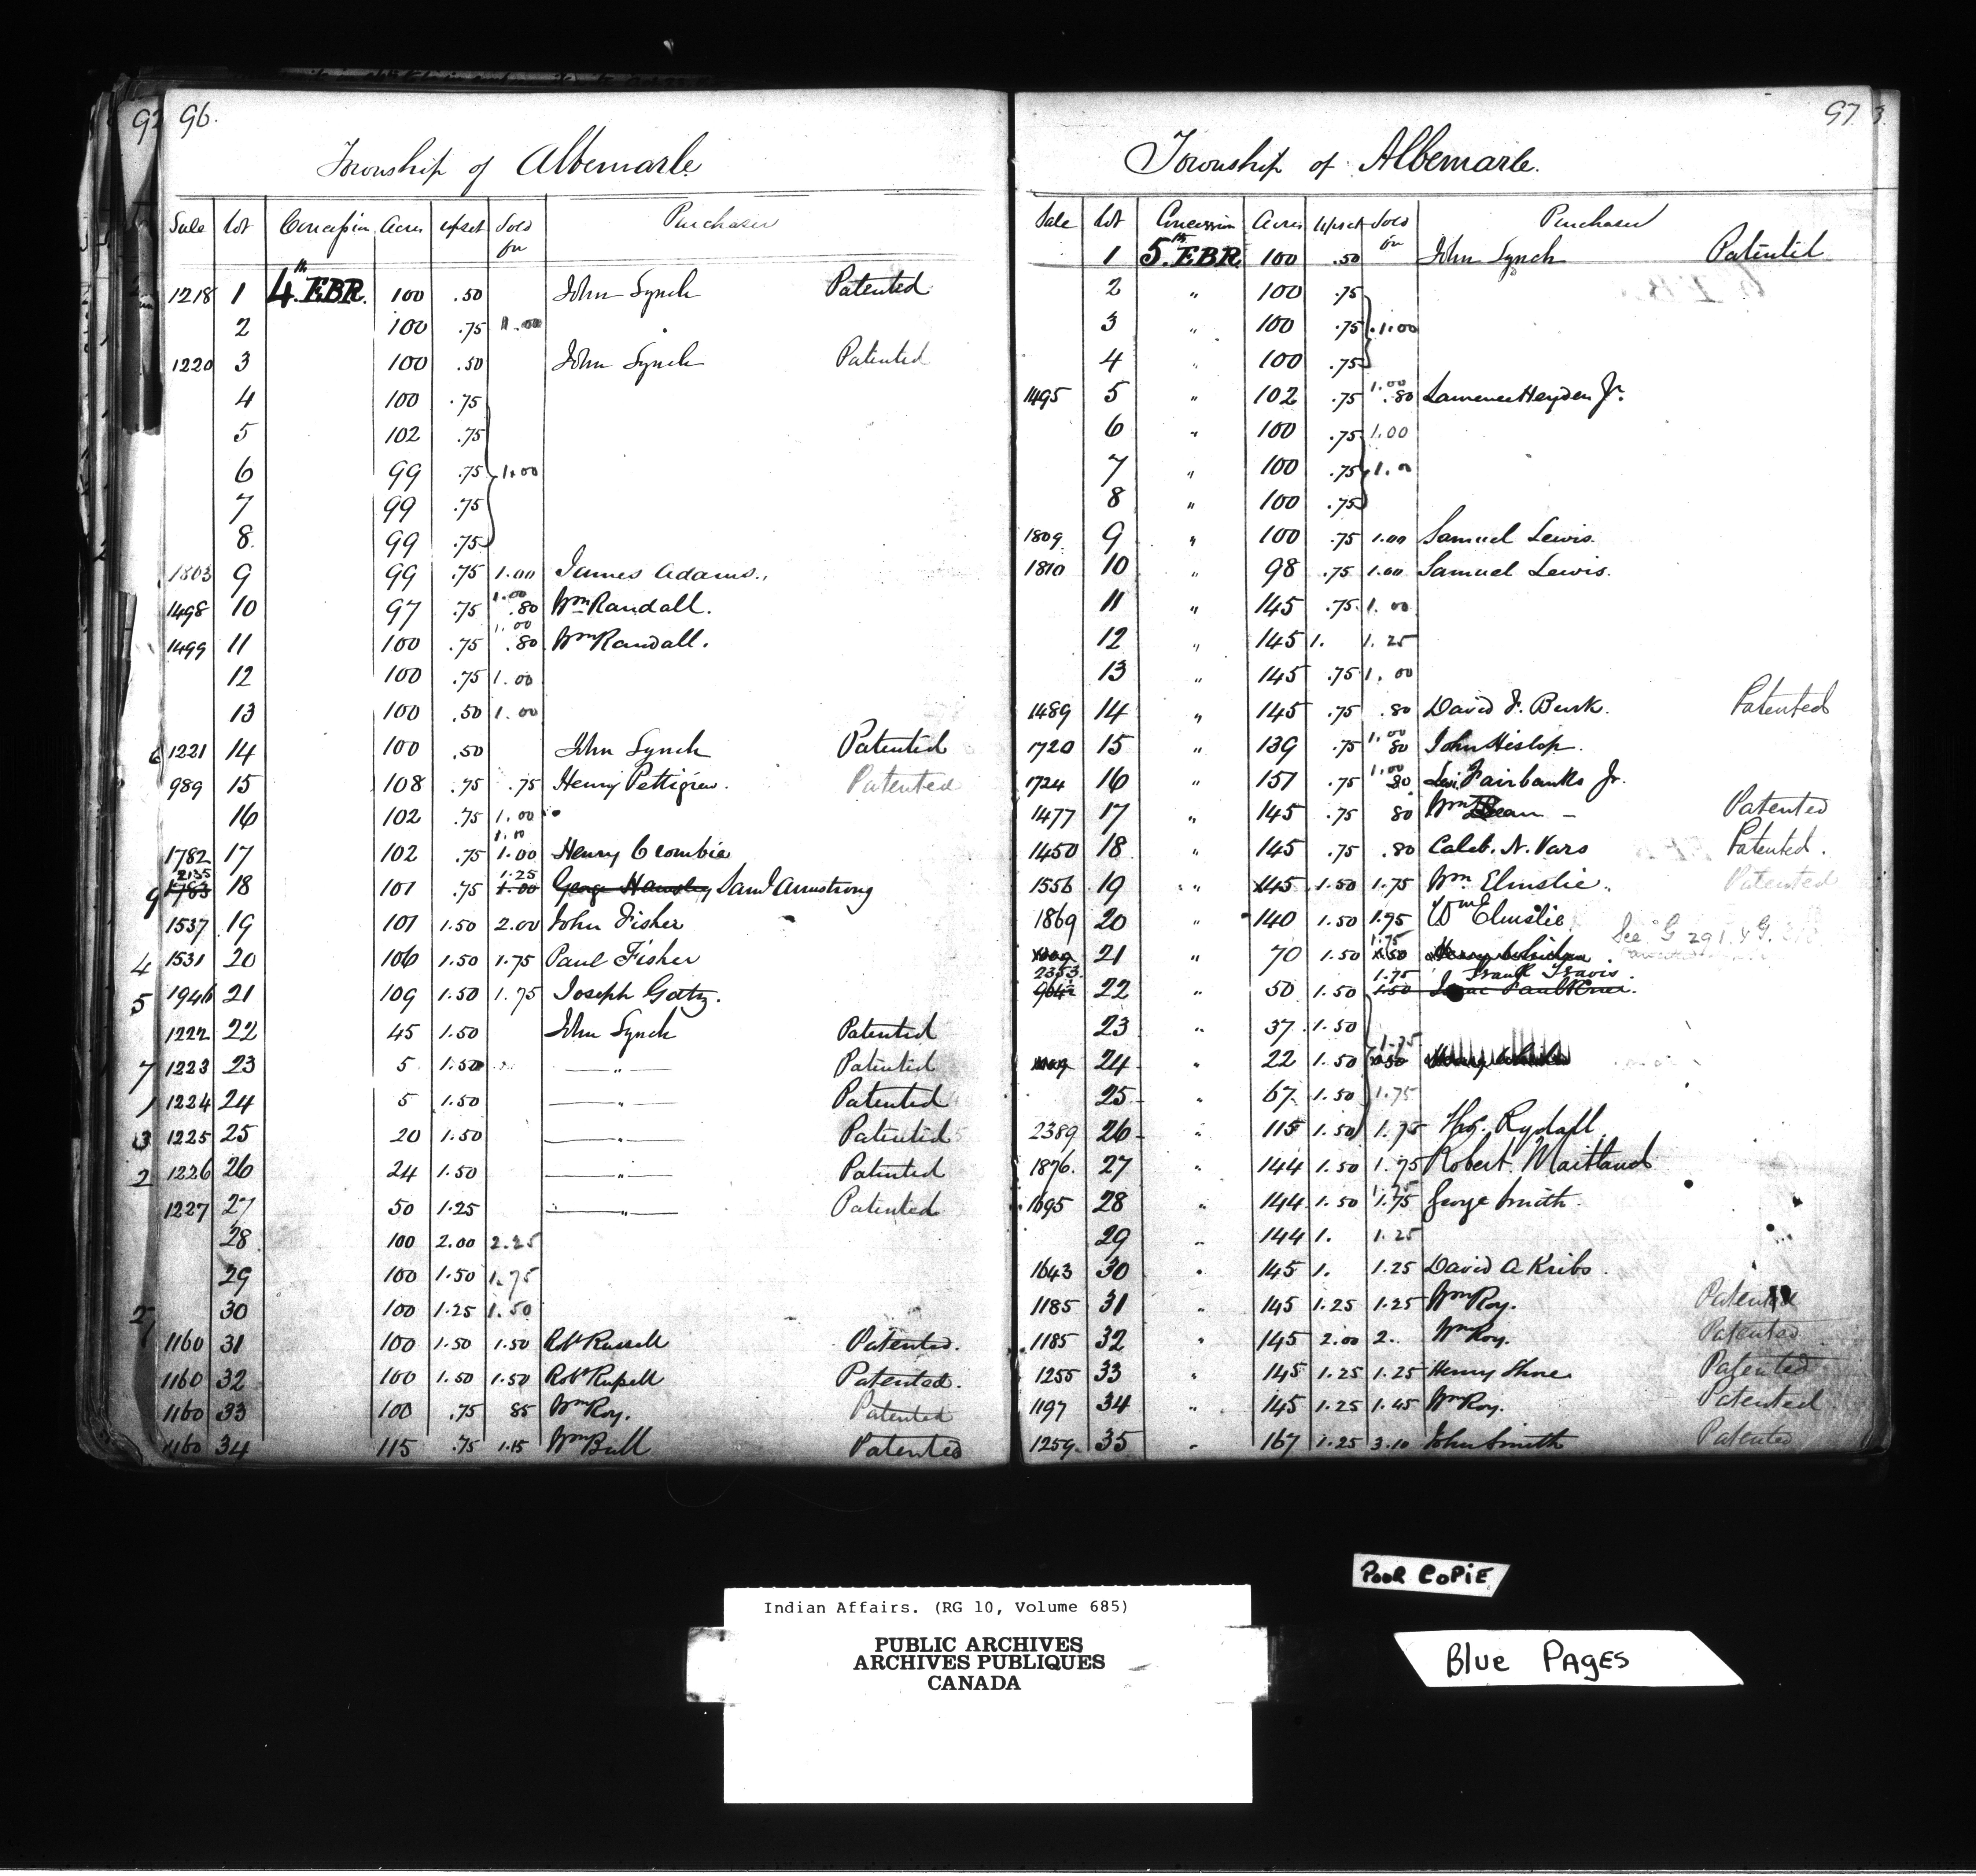 96.
Township of Albemarle
Sale Lot Concession Acres upset Sold for Purchaser
1218 1 4th EBR. 100 .50 John Lynch Patented
2 100 .75 1.00
1220 3 100 .50 John Lynch Patented
4 100 .75
5 102 .75
6 99 .75 1.00
7 99 .75
8 99 .75
1803 9 99 .75 1.00 James Adams.
1498 10 97 .75 1.00 .80 Wm Randall.
1499 11 100 .75 1.00 .80 Wm Randall.
12 100 .75 1.00
13 100 .50 1.00
6 1221 14 100 .50 John Lynch Patented
989 15 108 .75 .75 Henry Pettigrew. Patented
16 102 .75 1.00
1782 17 102 .75 1.00 Henry Crombie
2135 1783 18 101 .75 1.25 1.00 George Hamsley Saml Armstrong
1537 19 101 1.50 2.00 John Fisher
4 1531 20 106 1.50 1.75 Paul Fisher
5 1946 21 109 1.50 1.75 Joseph Gatz.
1222 22 45 1.50 John Lynch Patented
7 1223 23 5 1.50 — " — Patented
1 1224 24 5 1.50 — " — Patented
3 1225 25 20 1.50 — " — Patented
2 1226 26 24 1.50 — " — Patented
1227 27 50 1.25 — " — Patented
28 100 2.00 2.25
29 100 1.50 1.75
30 100 1.25 1.50
1160 31 100 1.50 1.50 Robt Russell Patented.
1160 32 100 1.50 1.50 Robt Russell Patented.
1160 33 100 .75 85 Wm Roy. Patented
1160 34 115 .75 1.15 Wm Bull Patented
97
Township of Albemarle.
Sale Lot Concession Acres Upset Sold for Purchaser
1 5th EBR. 100 .50 John Lynch Patented
2 " 100 .75
3 " 100 .75 1.00
4 " 100 .75
1495 5 " 102 .75 1.00 .80 Lawrence Heyden Jr.
6 " 100 .75 1.00
7 " 100 .75 1.00
8 " 100 .75
1809 9 " 100 .75 1.00 Samuel Lewis.
1810 10 " 98 .75 1.00 Samuel Lewis.
11 " 145 .75 1.00
12 " 145 1. 1.25
13 " 145 .75 1.00
1489 14 " 145 .75 .80 David F. Burk. Patented
1720 15 " 139 .75 1.00 80 John Hislop.
1724 16 " 151 .75 1.00 .80 Levi Fairbanks Jr.
1477 17 " 145 .75 80 Wm Bean – Patented
1450 18 " 145 .75 .80 Caleb. N. Vars Patented.
1556 19 " 145 1.50 1.75 Wm. Elmslie. Patented
1869 20 " 140 1.50 1.75 Wm Elmslie
See G 291
21 " 70 1.50 1.75 1.50
2353 22 " 50 1.50 1.75 1.50 Frank Travis. Isaac Faulkner.
23 " 37 1.50
24 " 22 1.50 1.75 1.50
25 " 67 1.50 1.75
2389 26 " 115 1.50 1.75 Thos. Rydall
1876. 27 " 144 1.50 1.75 Robert Maitland
1695 28 " 144 1.50 1.75 George Smith.
29 " 144 1. 1.25
1643 30 " 145 1. 1.25 David A Kribs.
1185 31 " 145 1.25 1.25 Wm Roy. Patented
1185 32 " 145 2.00 2. Wm Roy. Patented
1255 33 " 145 1.25 1.25 Henry Shore Patented
1197 34 " 145 1.25 1.45 Wm Roy. Patented
1259. 35 " 167 1.25 3.10 John Smith Patented
POOR COPIE
Indian Affairs. (RG 10, Volume 685)
PUBLIC ARCHIVES
ARCHIVES PUBLIQUES
CANADA
Blue PAgeS